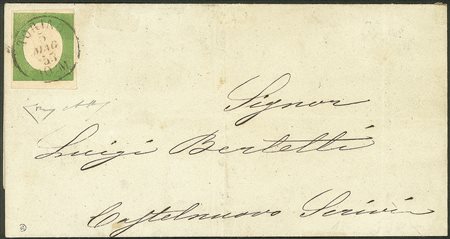 TORINO
5
MAG
57
Signor
Luigi Bertelli
Castelnuovo Scrivia